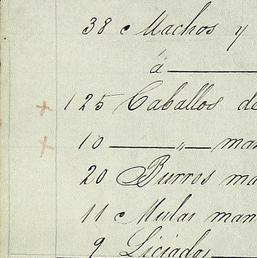 38 Machos y
á
+ 125 Caballos de
+ 10 " man
20 Burros ma
11 Mulas man
9 Liciados